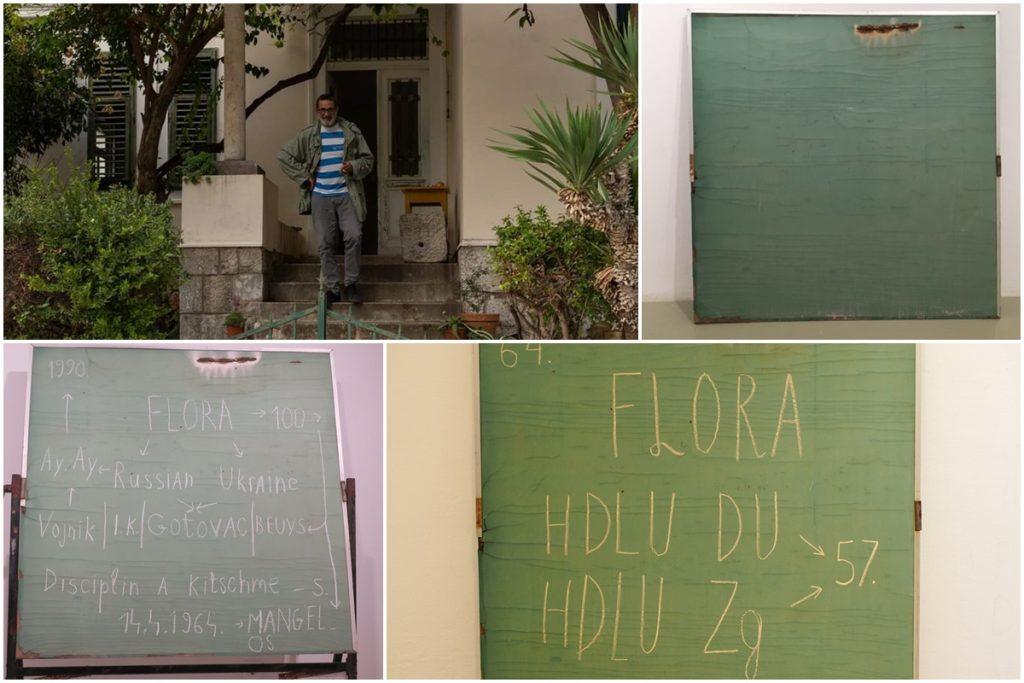 1990.
FLORA → 100 →
Ay, Ay ← Russian Ukraine
Vojnik | I.K | GOTOVAC | BEUYS ←
Disciplin A Kitschme - S.
14.4.1964. → MANGEL-
OS
64.
FLORA
HDLU DU
57.
HDLU Zg